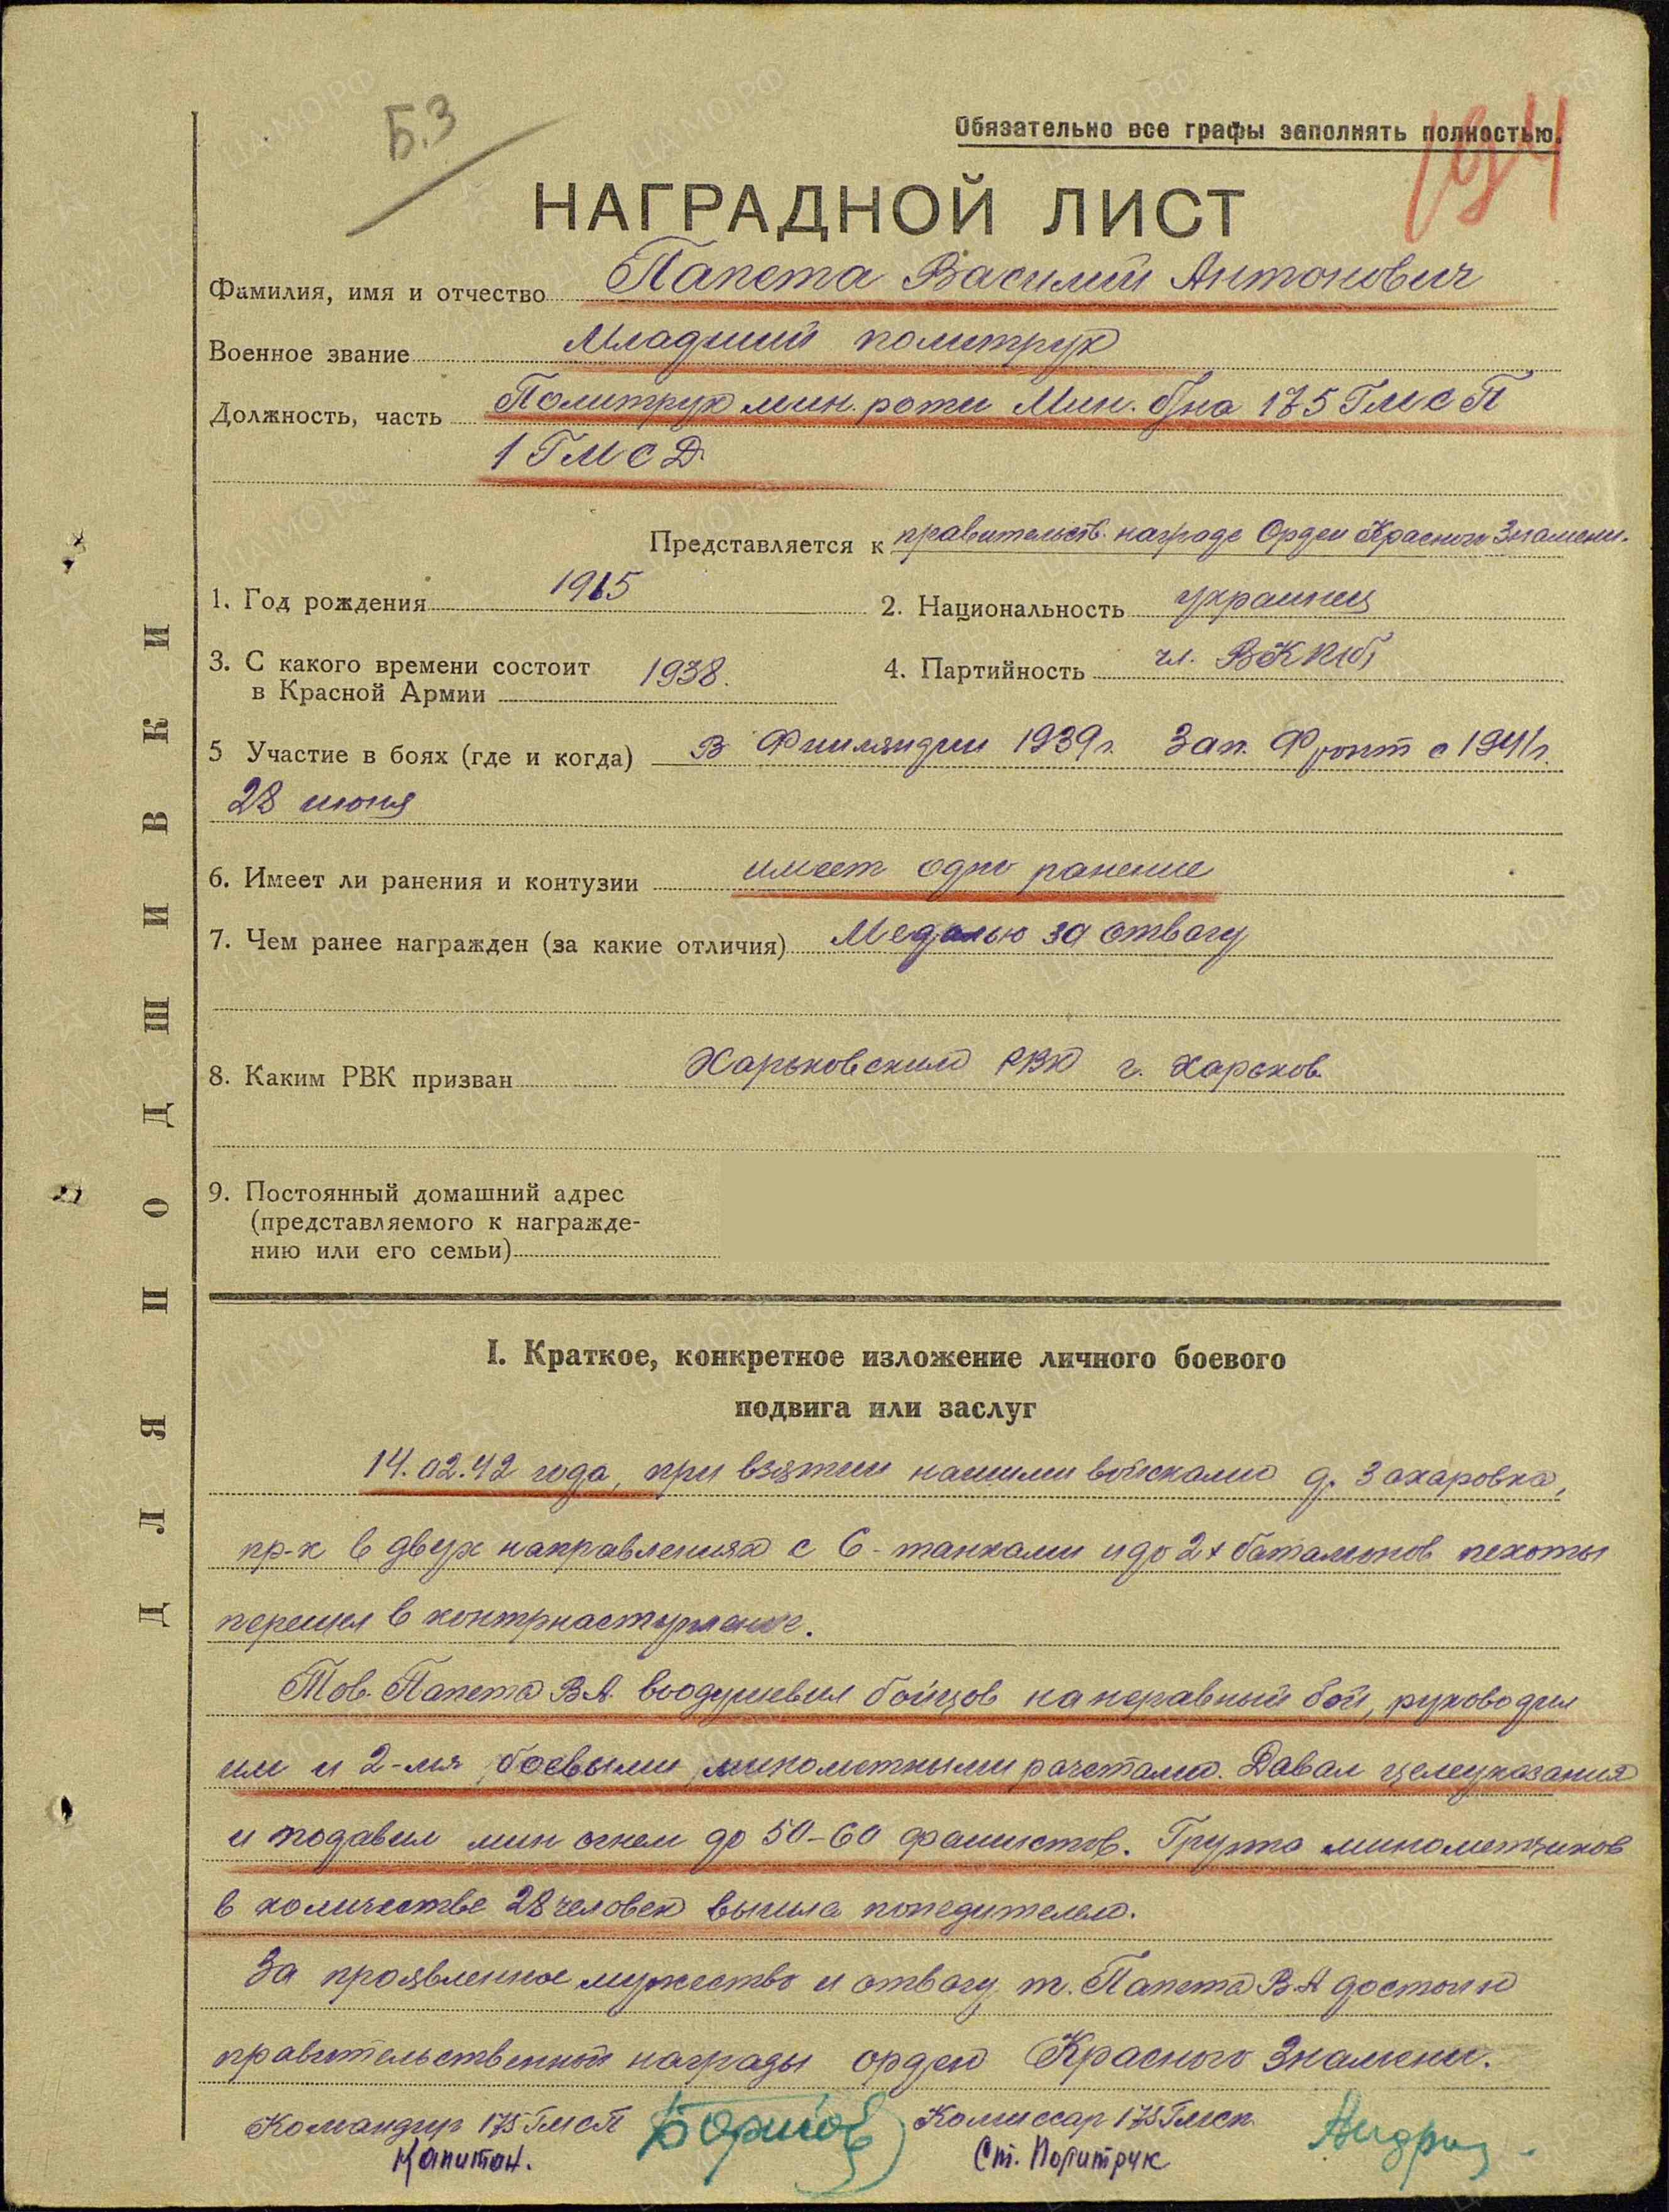 Б.З
Обязательно все графы заполнять полностью.
НАГРАДНОЙ ЛИСТ
Фамилия, имя и отчество Папета Василий Антонович
Военное звание Младший политрук
Должность, часть Политрук мин. роты Мин. б/на 175 ГМСП
1 ГМСД
Представляется к правительств. награде Орден Красного Знамени.
1. Год рождения 1915
2. Национальность украинец
3. С какого времени состоит
в Красной Армии 1938.
4. Партийность чл. ВКП(б)
5 Участие в боях (где и когда) В Финляндии 1939г. Зап. Фронт с 1941г.
28 июня
6. Имеет ли ранения и контузии имеет одно ранение
7. Чем ранее награжден (за какие отличия) Медалью за отвагу
8. Каким РВК призван Харьковским РВК г. Харьков
9. Постоянный домашний адрес
(представляемого к награжде-
нию или его семьи)
ДЛЯ ПОДШИВКИ
I. Краткое, конкретное изложение личного боевого
подвига или заслуг
14.02.42 года, при взятии нашими войсками д. Захаровка,
пр-к в двух направлениях с 6-танками и до 2х баталионов пехоты
перешел в контрнаступление.
Тов. Папета В.А. воодушевил бойцов на неравный бой, руководил
им и 2-мя боевыми минометными расчетами. Давал целеуказания
и подавил мин огнем до 50-60 фашистов. Группа минометчиков
в количестве 28 человек вышла победителем.
За проявленное мужество и отвагу т. Папета В.А достоин
правительственной награды орден Красного Знамени.
Командир 175 ГмсП
Комиссар 175 Гмсп.
Капитан.
Ст. Политрук